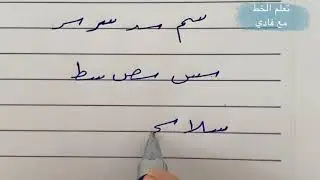 تعلم الخط
مع فادي
سم سد سر سر
سس سص سط
سلا سح